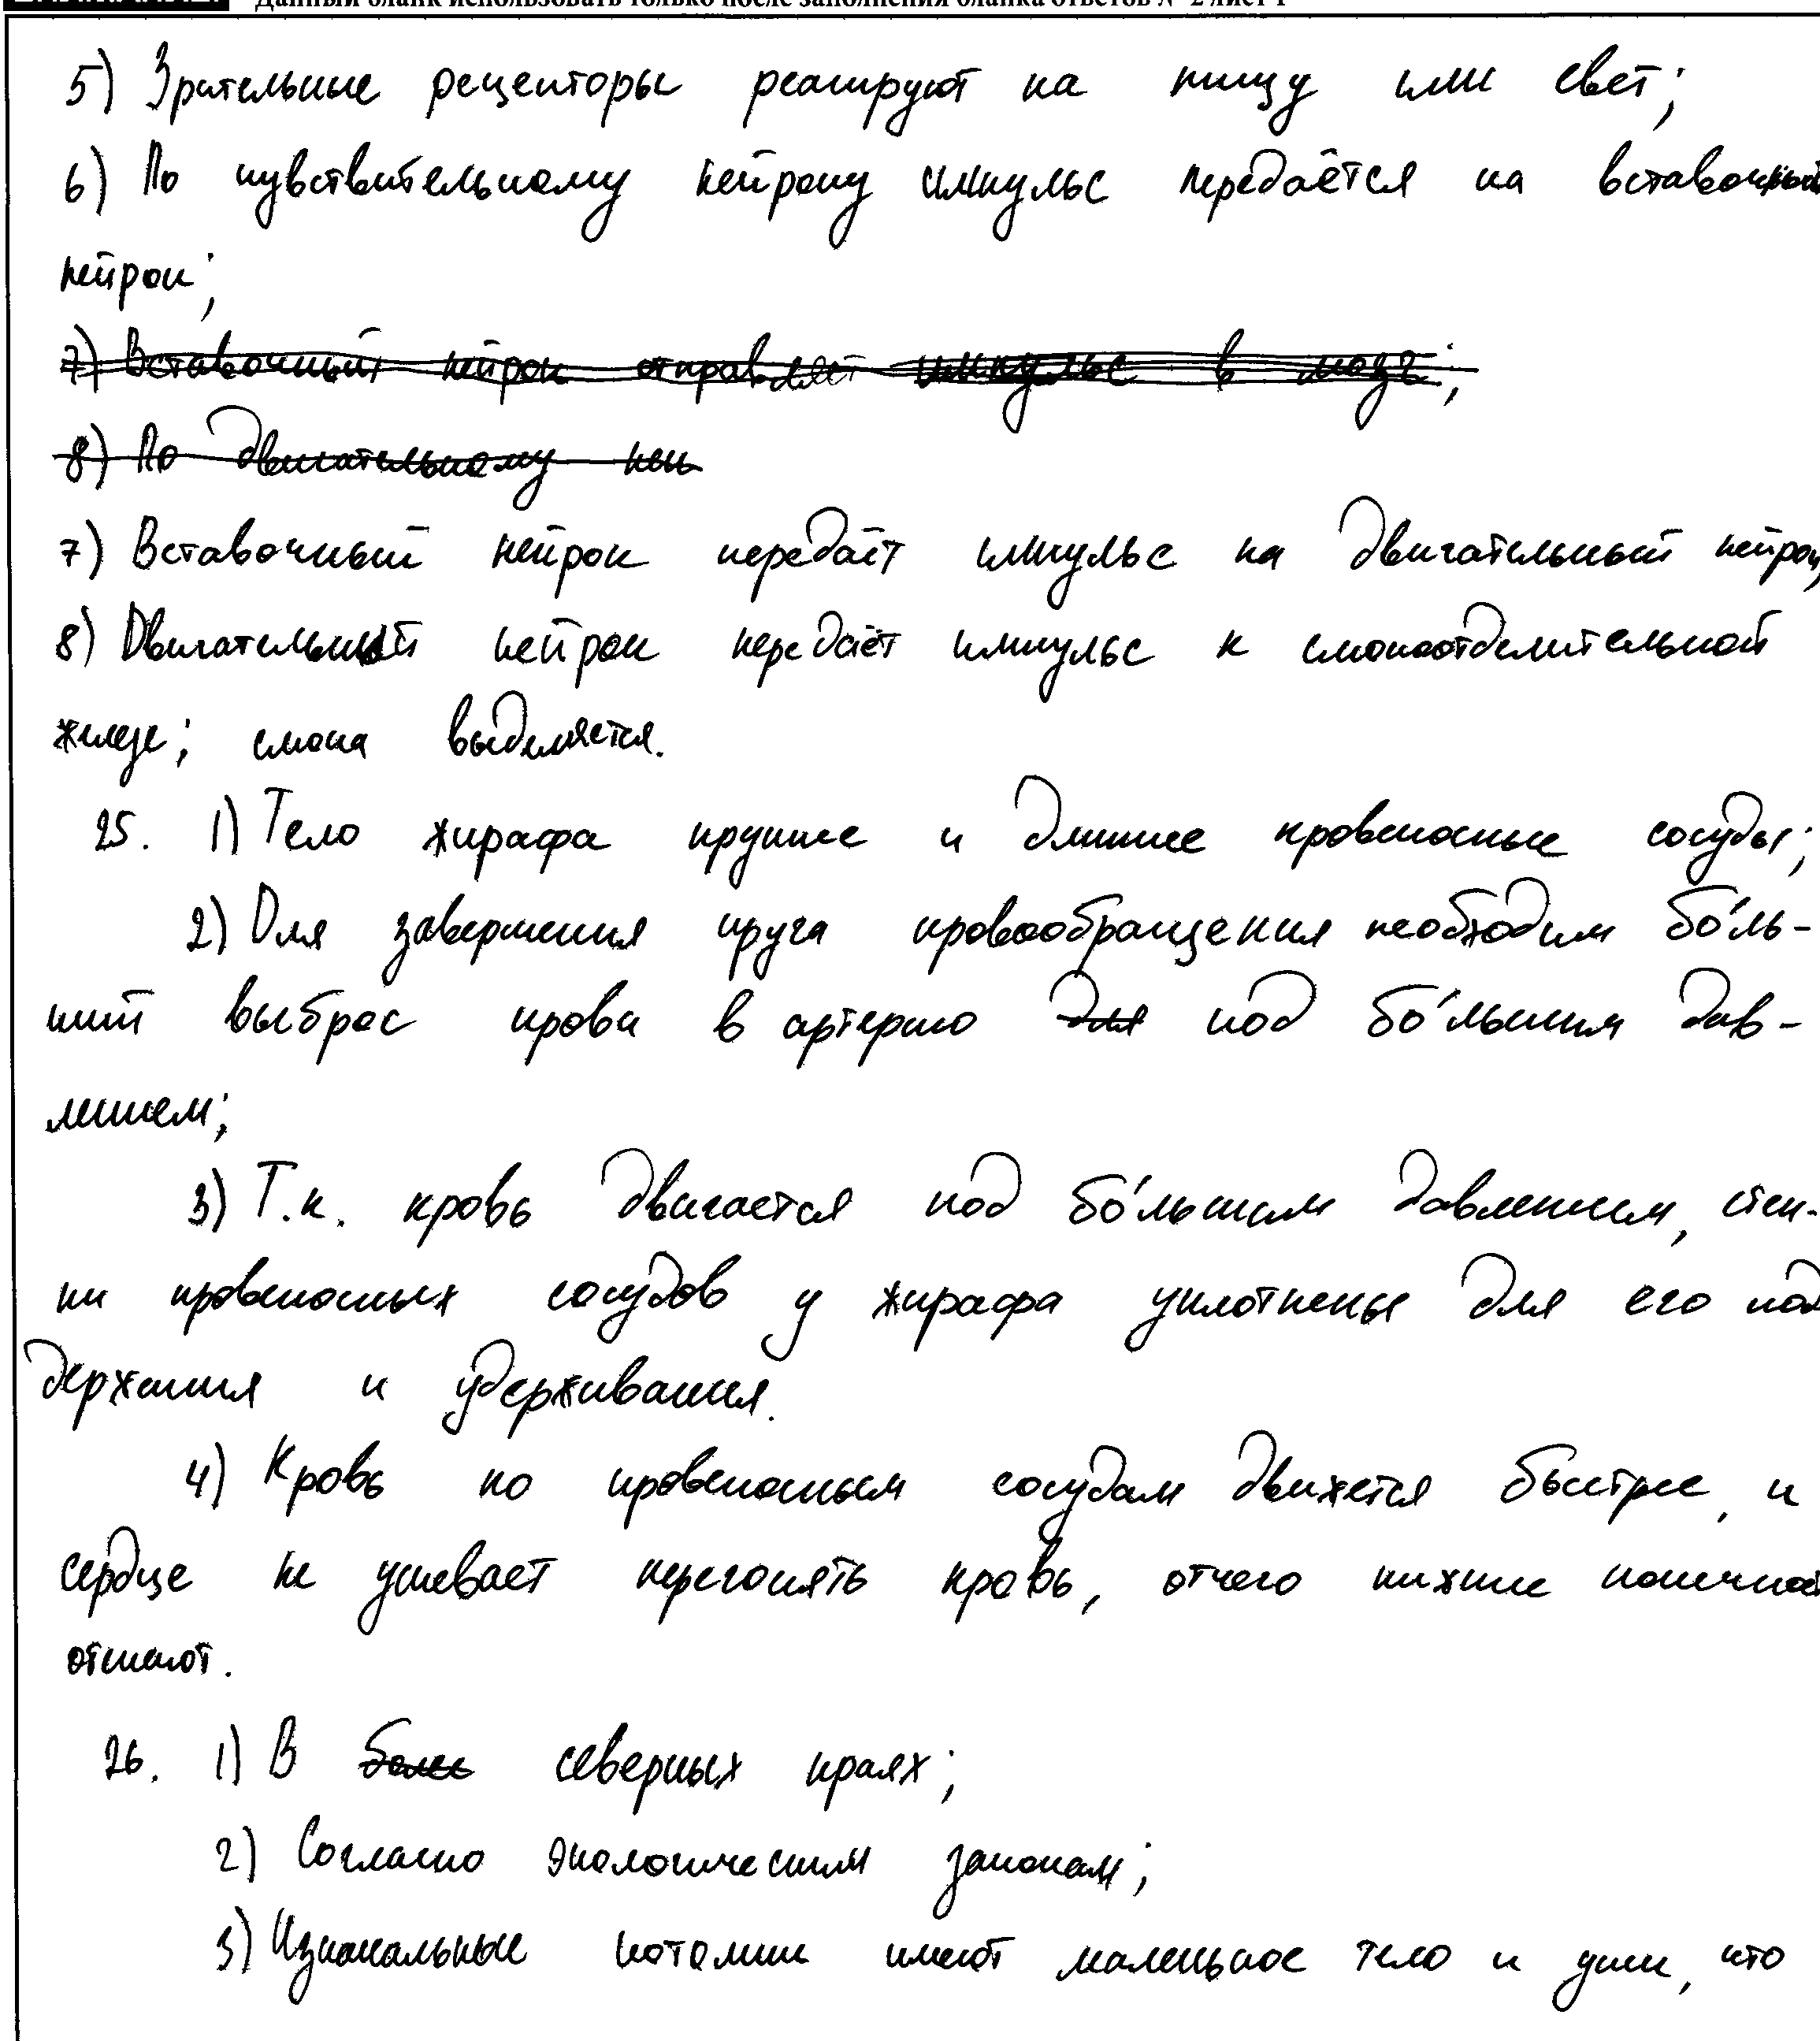 Данный бланк использовать только после заполнения бланка ответов № 2 лист 1
5) Зрительные рецепторы реагируют на пищу или свет;
6) По чувствительному нейрону импульс передаётся на вставочный
нейрон;
7) Вставочный нейрон отправляет импульс в мозг;
8) По двигательному ней
7) Вставочный нейрон передаёт импульс на двигательный нейрон;
8) Двигательный нейрон передаёт импульс к слюноотделительной
железе; слюна выделяется.
25. 1) Тело жирафа крупнее и длиннее кровеносные сосуды;
2) Для завершения круга кровообращения необходим бо́ль-
ший выброс крови в артерию для под бо́льшим дав-
лением;
3) Т.к. кровь двигается под бо́льшим давлением, стен-
ки кровеносных сосудов у жирафа уплотнены для его под
держания и удерживания.
4) Кровь по кровеносным сосудам движется быстрее, и
сердце не успевает перегонять кровь, отчего нижние конечности
отекают.
26. 1) В более северных краях;
2) Согласно экологическим законам;
3) Изначальные потомки имеют маленькое тело и уши, что